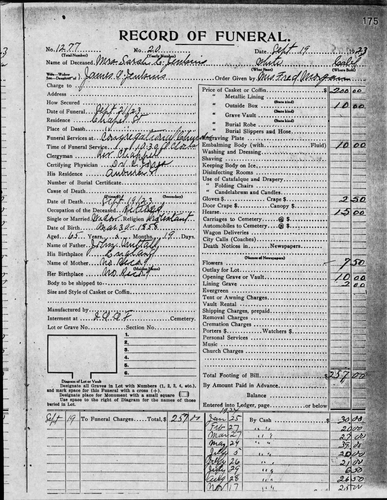 175
RECORD OF FUNERAL.
No. 1277 No. 20 Date, Sept 19 1923
(Total Number) (Yearly Number)
Name of Deceased, Mrs. Sarah C. Jenkins White Calif
(What Race) (Where Born)
James A Jenkins Order Given by Mrs Fred Morgan
Charge to
Address
How Secured
Date of Funeral, Sept 21/23
Residence Chapel St
Place of Death,
Funeral Services at Congregational Church
Time of Funeral Service, 10:30 A
Clergyman Rev.
Certifying Physician
His Residence Auburn
Number of Burial Certificate,
Cause of Death
Date of Death Sept 19/23
Occupation of the Deceased, Retired
Single or Married Religion Protestant
Date of Birth Mar 3rd 1858
Aged 65 Years 6 Months 19 Days
Name of Father, John
His Birthplace England
Name of Mother No Rec
Her Birthplace No Rec
Body to be shipped to
Size and Style of Casket or Coffin,
Manufactured by
Interment at I.O.O.F Cemetery.
Lot or Grave No. Section No.
1.
2.
3.
4.
5.
6.
Diagram of Lot or Vault
Designate all Graves in Lot with Numbers (1, 2, 3, 4, etc.)
and mark space for this Funeral with a cross (+).
Designate place for Monument with a small square
Use space to the right of Diagram for the names of those
buried in Lot.
Price of Casket or Coffin, $ 200.00
" Metallic Lining
" Outside Box 10.00
" Grave Vault
" Burial Robe
" Burial Slippers and Hose
Engraving Plate
Embalming Body (with Fluid) 10 00
Washing and Dressing
Shaving
Keeping Body on Ice
Disinfecting Rooms
Use of Catafalque and Drapery
" Folding Chairs
" Candelabrum and Candles
Gloves $ Crape $ 2 50
Door Crape $ Canopy $
Hearse 15 00
Carriages to Cemetery @ $
Automobiles to Cemetery @ $
Wagon Deliveries
City Calls (Coaches)
Death Notices in Newspapers
Flowers 7 50
Outlay for Lot
Opening Grave or Vault 10 00
Lining Grave 2 00
Evergreen
Tent or Awning Charges
Vault Rental
Shipping Charges, prepaid
Removal Charges
Cremation Charges
Porters $ Watchers $
Personal Services
Music
Church Charges
Total Footing of Bill $ 257.00
By Amount Paid in Advance
Balance
Entered into Ledger, page or below.
Sept 19 To Funeral Charges, Total $ 257.00
1924
Jan 25 By Cash 30 00
Feb 27 " " 20 00
Mar 27 " " 27 00
May 24 " "
July 5 " " 20 00
" " 21 00
" " 6 50
" "
Nov 17 " "